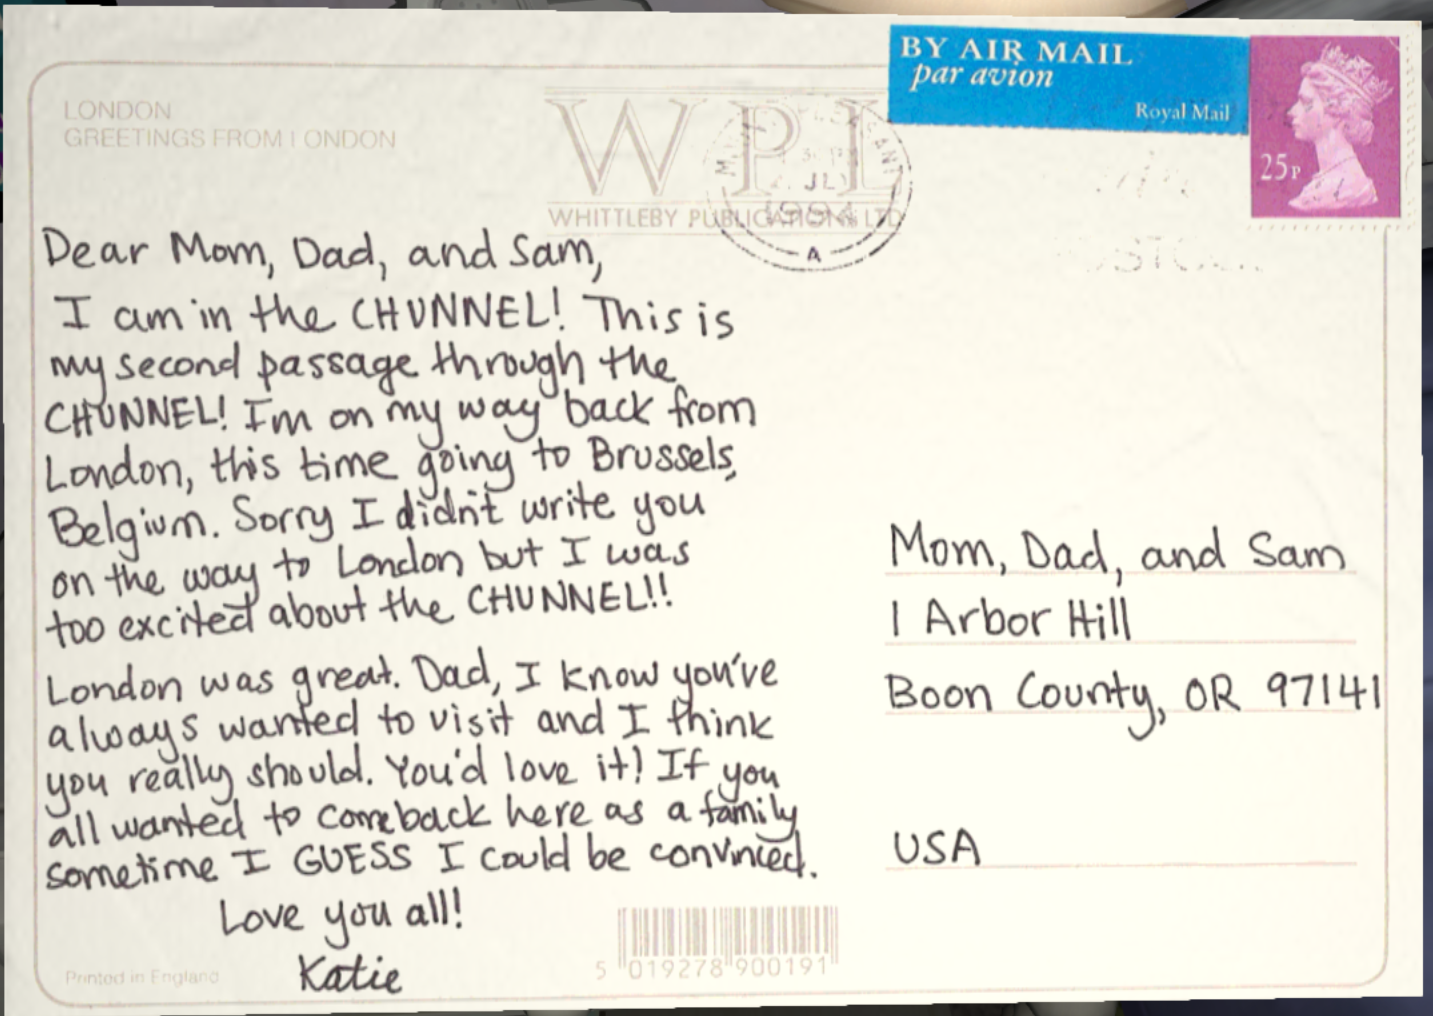 BY AIR MAIL
par avion
Royal Mail
25P
LONDON
GREETINGS FROM LONDON
WPL
WHITTLEBY PUBLICATIONS LTD
JLY
1994
A
Dear Mom, Dad, and Sam,
I am in the CHUNNEL! This is
my second passage through the
CHUNNEL! I'm on my way back from
London, this time going to Brussels,
Belgium. Sorry I didn't write you
on the way to London but I was
too excited about the CHUNNEL!!
London was great. Dad, I know you've
always wanted to visit and I think
you really should. You'd love it! If you
all wanted to come back here as a family
sometime I GUESS I could be convinced.
Love you all!
Katie
Mom, Dad, and Sam
1 Arbor Hill
Boon County, OR 97141
USA
Printed in England
5 019278 900191